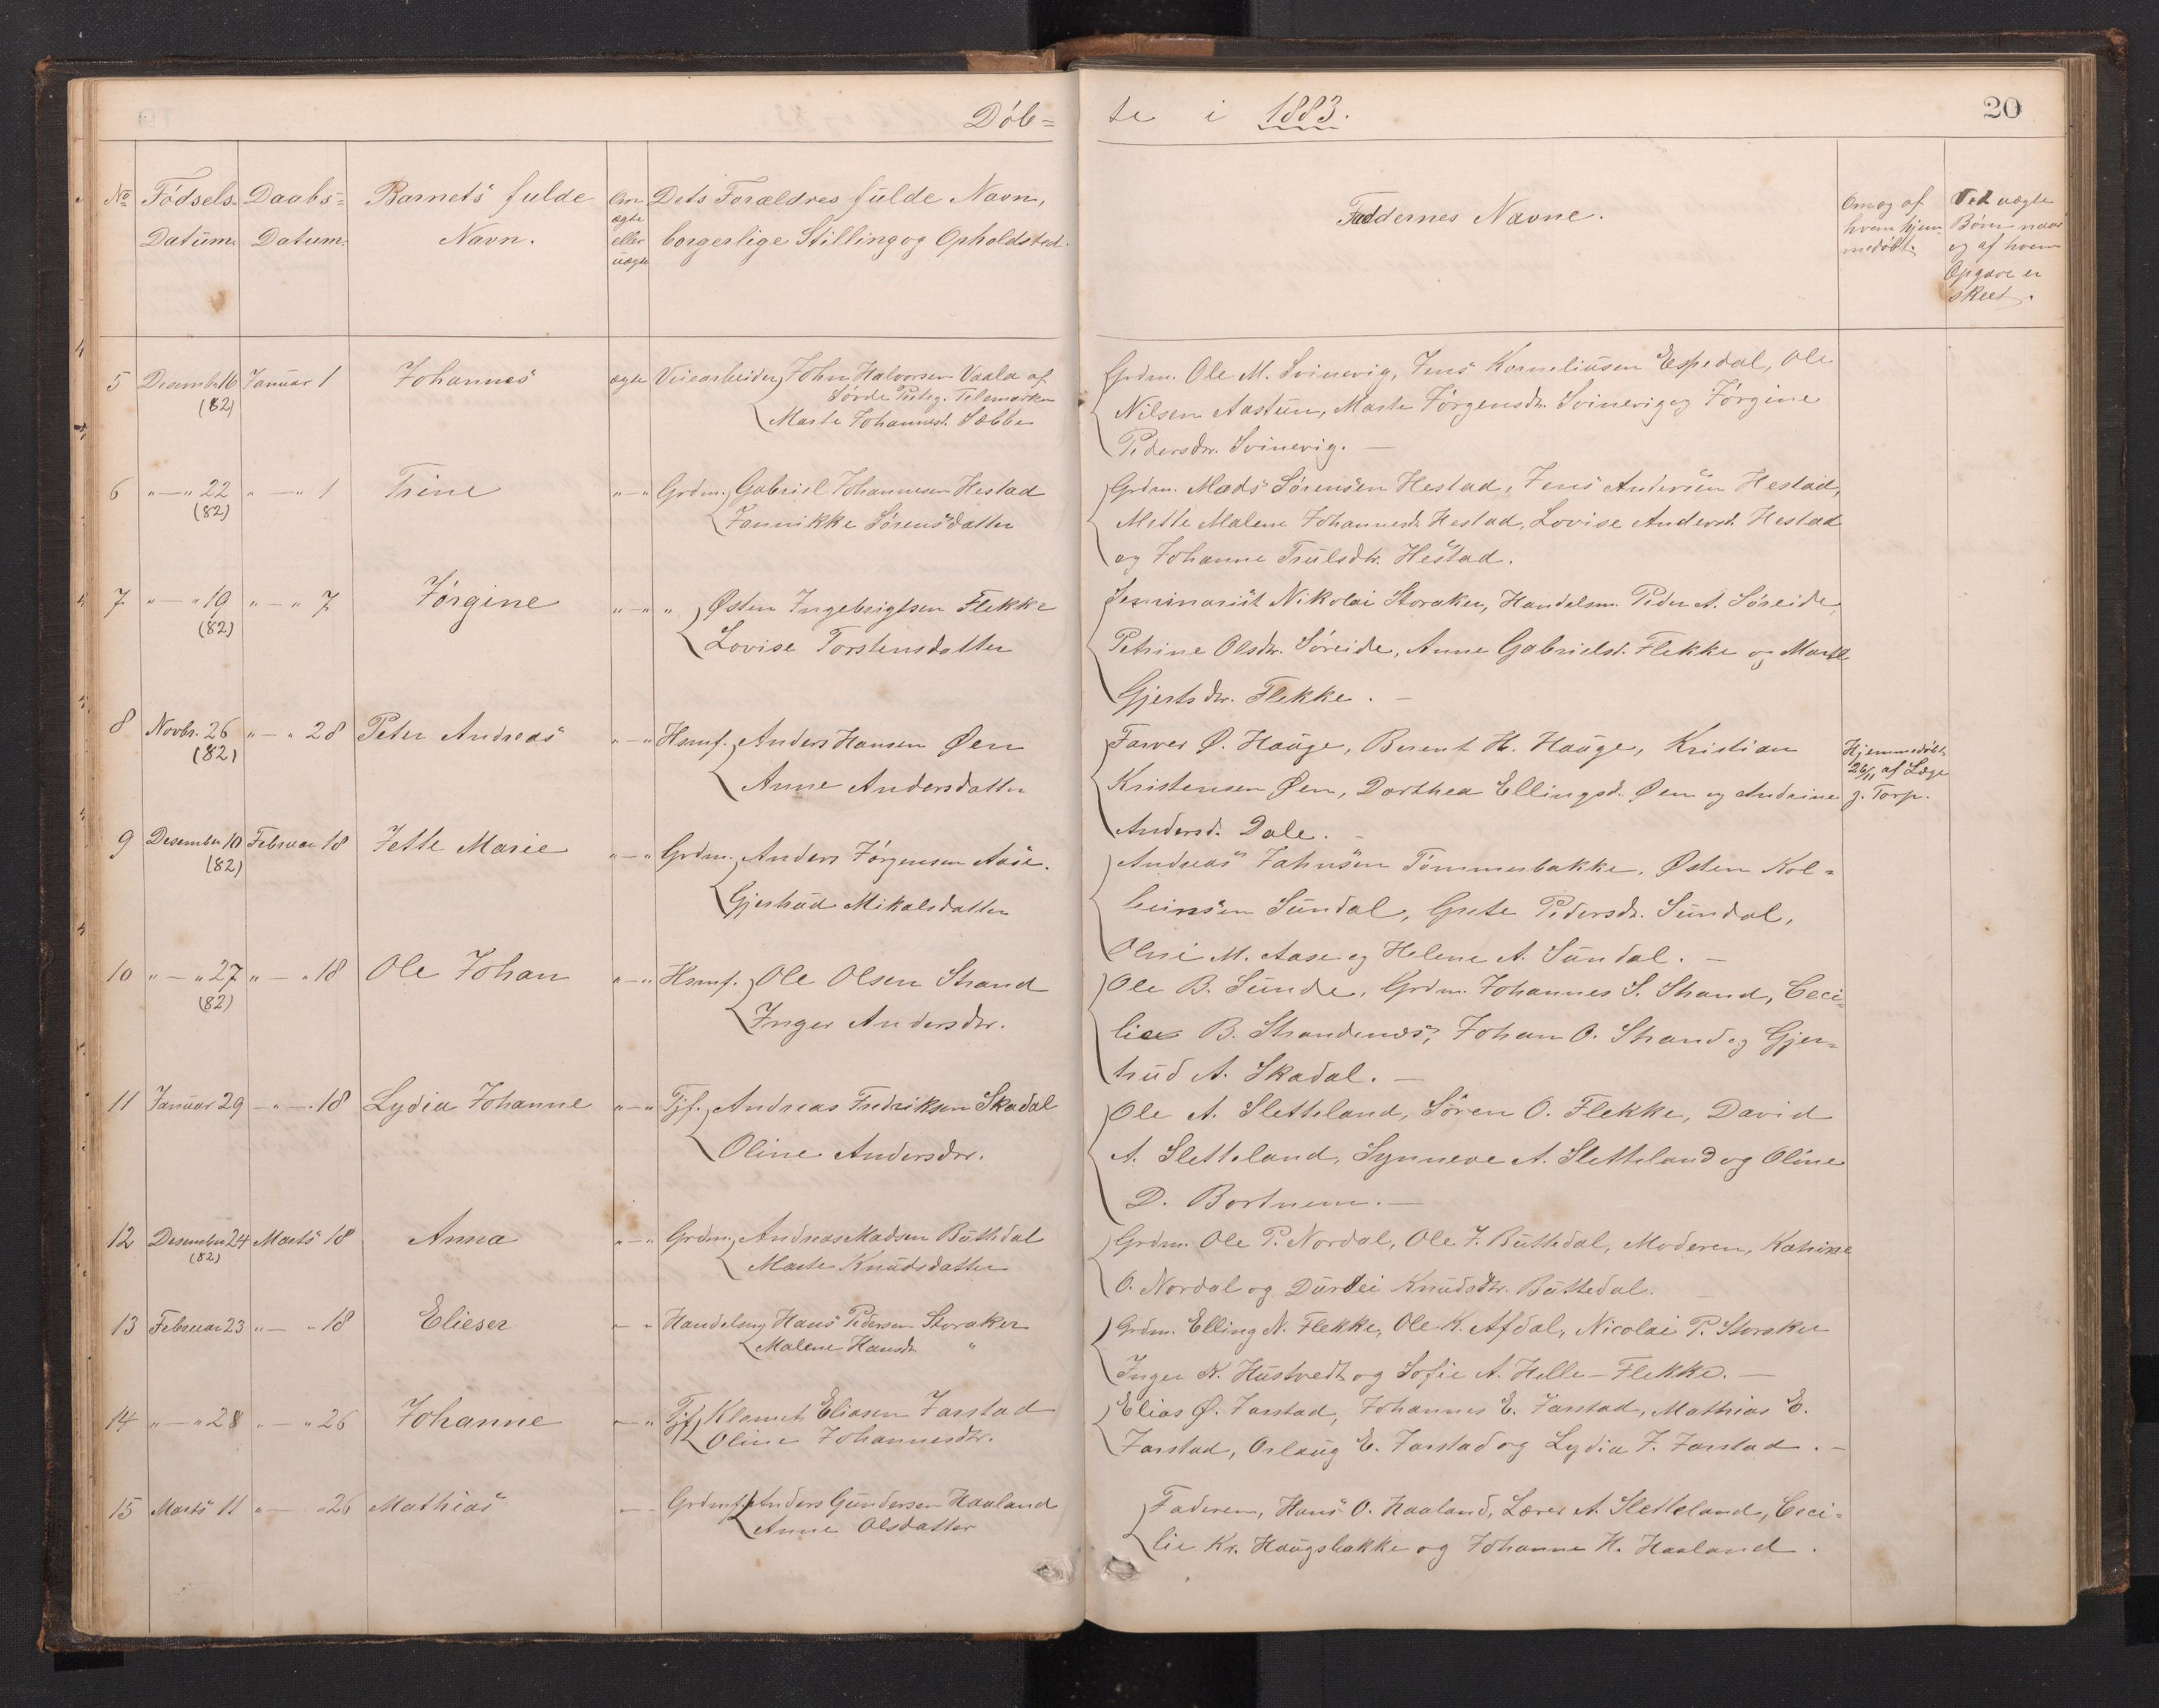 Døb= te i 1883. 20
No Fødsels- Daabs= Barnets fulde Om Dets Forældres fulde Navn, Faddernes Navne. Om og af Ved uægte
Datum. Datum. Navn. ægte eller uægte borgerlige Stilling og Opholdsted. hvem hjemmedøbt. Børn naar og af hvem Opgave er skeet.
5 Desember 16 Januar 1 Johannes ægte Veiearbeider, John Halvorsen Vaala af
(82) Præstg. Telemarken
Marte Johannesd. Sæbbe
Grdm. Ole M. Svinevig, Jens Korneliusen Espedal, Ole
Nilsen Aastun, Marte Jørgensdr. Svinevig og Jørgine
Pedersdtr. Svinevig. —
6 " — " 22 " — " 1 Trine " — " Grdm. Gabriel Johannesen Hestad
(82) Jannikke Sørensdatter
Grdm. Mads Sørensen Hestad, Jens Andersen Hestad,
Mette Malene Johannesd. Hestad, Lovise Andersd. Hestad
og Johanne Trulsdtr. Hestad.
7 " — " 19 " — " 7 Jørgine " — " " Østen Ingebrigtsen Flekke
(82) Lovise Torstensdatter
Seminarist Nikolai Storaker, Handelsm. Peder A. Søreide,
Petrine Olsdtr. Søreide, Anne Gabrielsd. Flekke og Marte
Gjertsdtr. Flekke. —
8 Novbr. 26 " — " 28 Peter Andreas " — " Hsmf. Anders Hansen Øen
(82) Anne Andersdatter
Farver Ø. Hauge, Berent H. Hauge, Kristian
Kristensen Øen, Dorthea Ellingsd. Øen og Andrine
Andersd. Dale. —
Hjemmedøbt
26/11 af Læge
J. Torp.
9 Desember 10 Februar 18 Jette Marie " — " Grdm. Anders Jørgensen Aase.
(82) Gjertrud Mikalsdatter
Andreas Jahnsen Tømmerbakke, Østen Kol=
beinsen Sundal, Grete Pedersdr. Sundal,
M. Aase og Helene A. Sundal. —
10 " — " 27 " — " 18 Ole Johan " — " Hsmf. Ole Olsen Strand
(82) Inger Andersdtr.
Ole B. Sunde, Grdm. Johannes S. Strand, Ceci=
lie B. Strandenæs, Johan O. Strand og Gjer=
trud A. Skadal. —
11 Januar 29 — " — " 18 Lydia Johanne " — " Tjf. Andreas Fredriksen Skadal
Oline Andersdtr.
Ole A. Sletteland, Søren O. Flekke, David
A. Sletteland, Synneve A. Sletteland og Oline
D. Bortnem. —
12 Desember 24 Marts 18 Anna " — " Grdm. Andreas Madsen Buttedal
(82) Marte Knudsdatter
Grdm. Ole P. Nordal, Ole J. Buttedal, Moderen, Katrine
O. Nordal og Durdei Knudsdtr. Buttedal. —
13 Februar 23 " — " 18 Elieser " — " Handelsm. Hans Pedersen Storaker
Malene Hansdr. "
Grdm. Elling N. Flekke, Ole K. Afdal, Nicolai P. Storaker
Inger K. Hustvedt og Sofie A. Helle-Flekke. —
14 " — " 28 " — " 26 Johanne " — " Tjf. Klemet Eliasen Jarstad
Oline Johannesdtr.
Elias Ø. Jarstad, Johannes E. Jarstad, Mathias E.
Jarstad, Orlaug E. Jarstad og Lydia J. Jarstad. —
15 Marts 11 " — " 26 Mathias — Grdmf. Anders Gundersen Haaland
Anne Olsdatter
Faderen, Hans O. Haaland, Lærer A. Sletteland, Ceci=
lie Kr. Haugsbakke og Johanne H. Haaland.